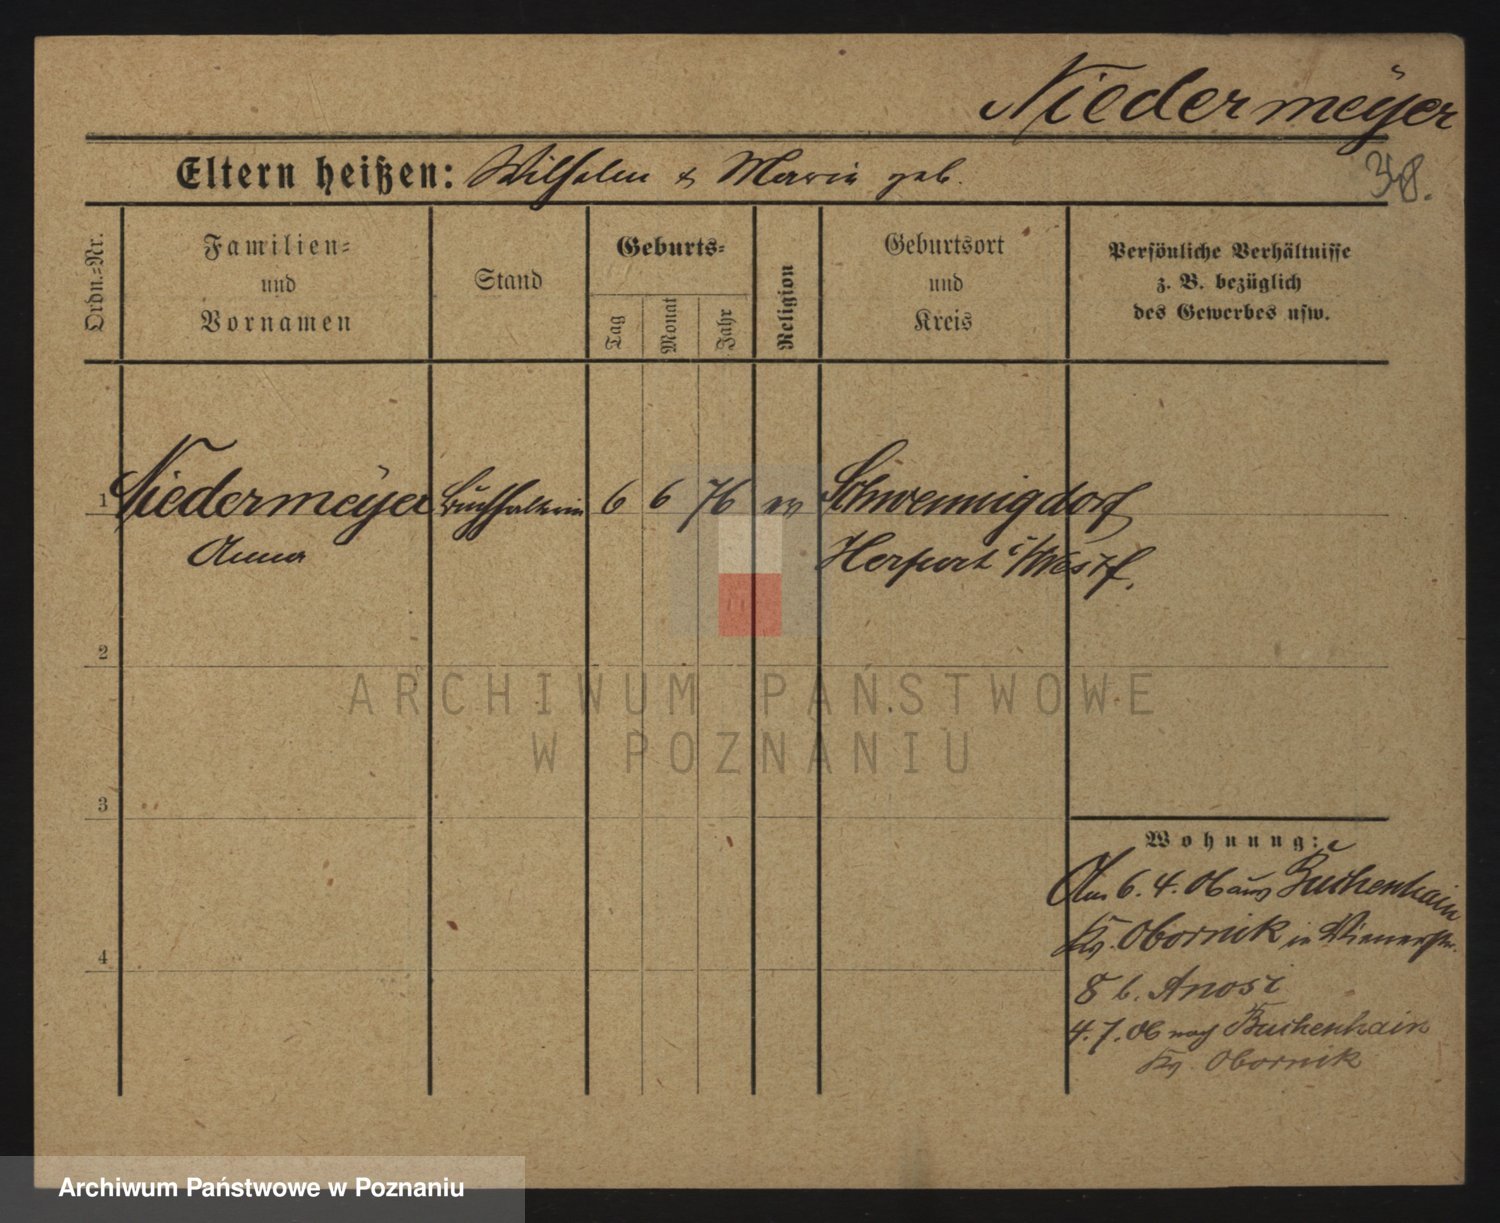 Niedermeÿer
Eltern heißen: Wilhelm & Marie geb.
Ordn.=Nr.
Familien=
und
Vornamen
Stand
Geburts=
Tag
Monat
Jahr
Religion
Geburtsort
und
Kreis
Persönliche Verhältnisse
z. B. bezüglich
des Gewerbes usw.
1 Niedermeÿer Buchhalterin 6 6 76 ev Schwennigdorf
Anna Herford i/Westf.
2
ARCHIWUM PAŃSTWOWE
W POZNANIU
3
Wohnung:
Am 6. 4. 06 aus Buchenhain
Kr. Obornik in Wienerstr.
8 b.
4
4. 7. 06 nach Buchenhain
Kr. Obornik
Archiwum Państwowe w Poznaniu